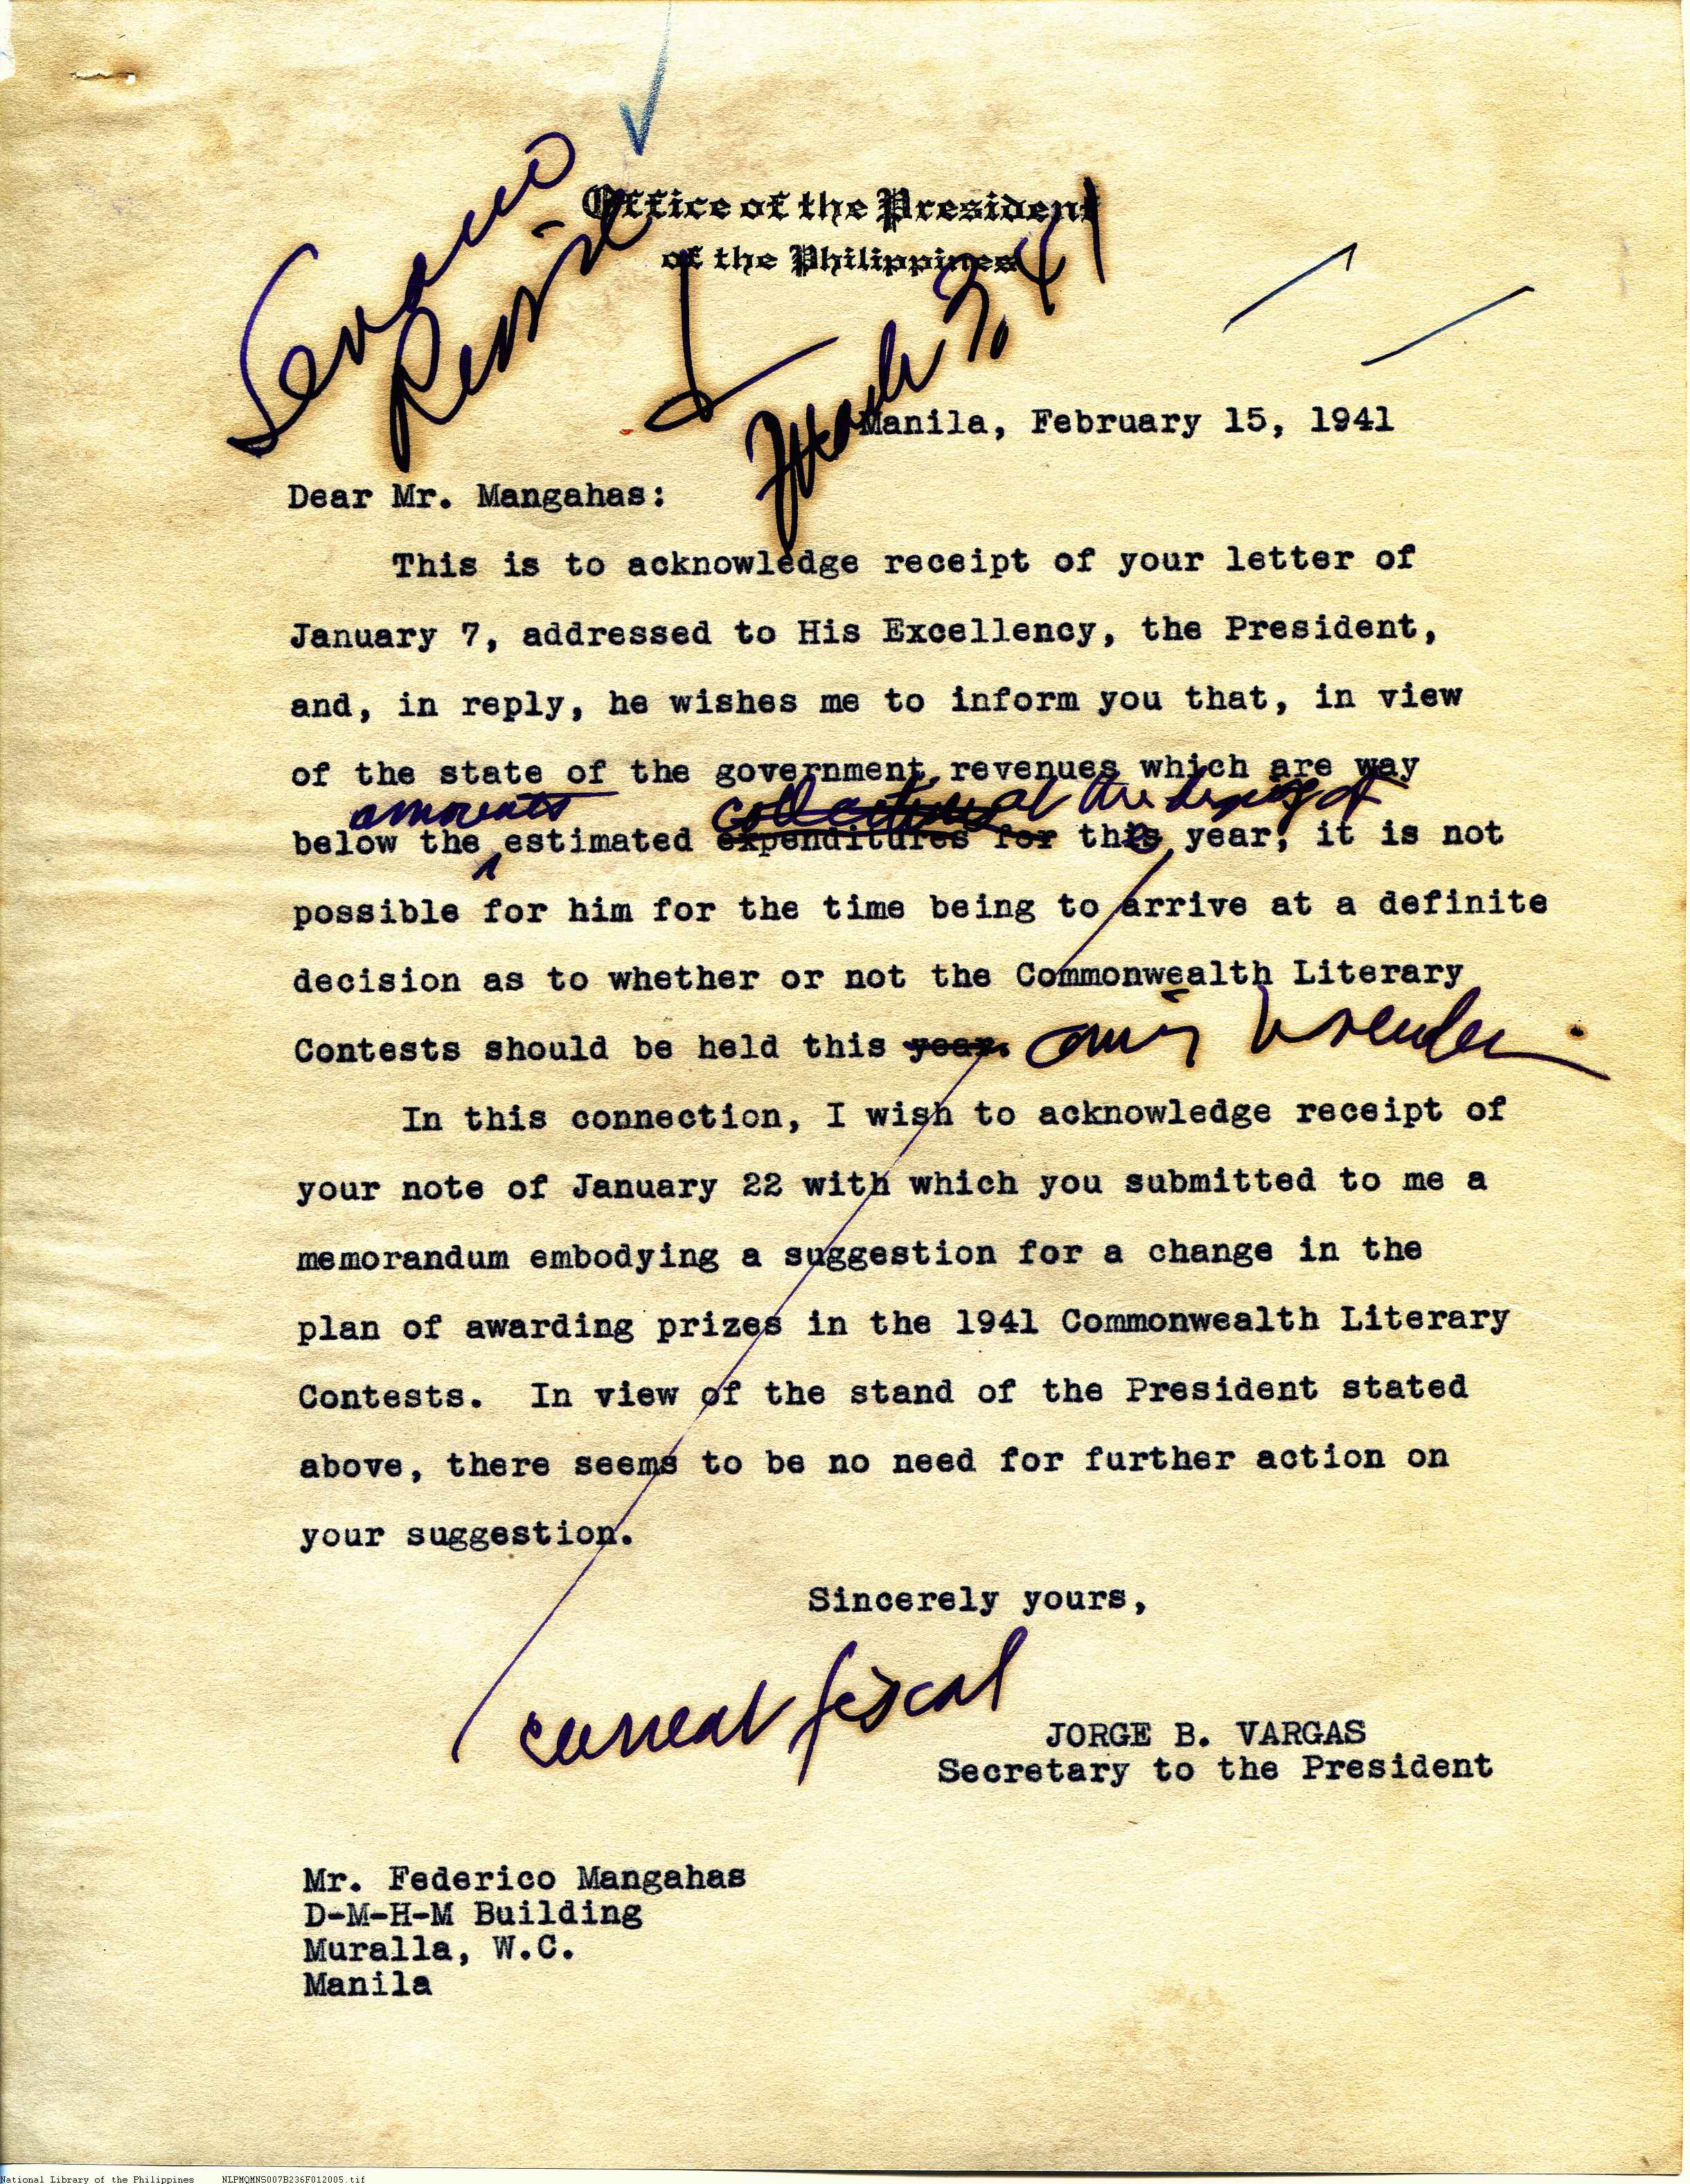 Office of the President
of the Philippines
March 3, 41
Manila, February 15, 1941
Dear Mr. Mangahas:
This is to acknowledge receipt of your letter of
January 7, addressed to His Excellency, the President,
and, in reply, he wishes me to inform you that, in view
of the state of the government revenues which are way
amounts at the beginning of
below the estimated expenditures for this year, it is not
possible for him for the time being to arrive at a definite
decision as to whether or not the Commonwealth Literary
Contests should be held this year.
In this connection, I wish to acknowledge receipt of
your note of January 22 with which you submitted to me a
memorandum embodying a suggestion for a change in the
plan of awarding prizes in the 1941 Commonwealth Literary
Contests. In view of the stand of the President stated
above, there seems to be no need for further action on
your suggestion.
Sincerely yours,
current fiscal
JORGE B. VARGAS
Secretary to the President
Mr. Federico Mangahas
D-M-H-M Building
Muralla, W.C.
Manila
National Library of the Philippines NLPMQMNS007B236F012005.tif